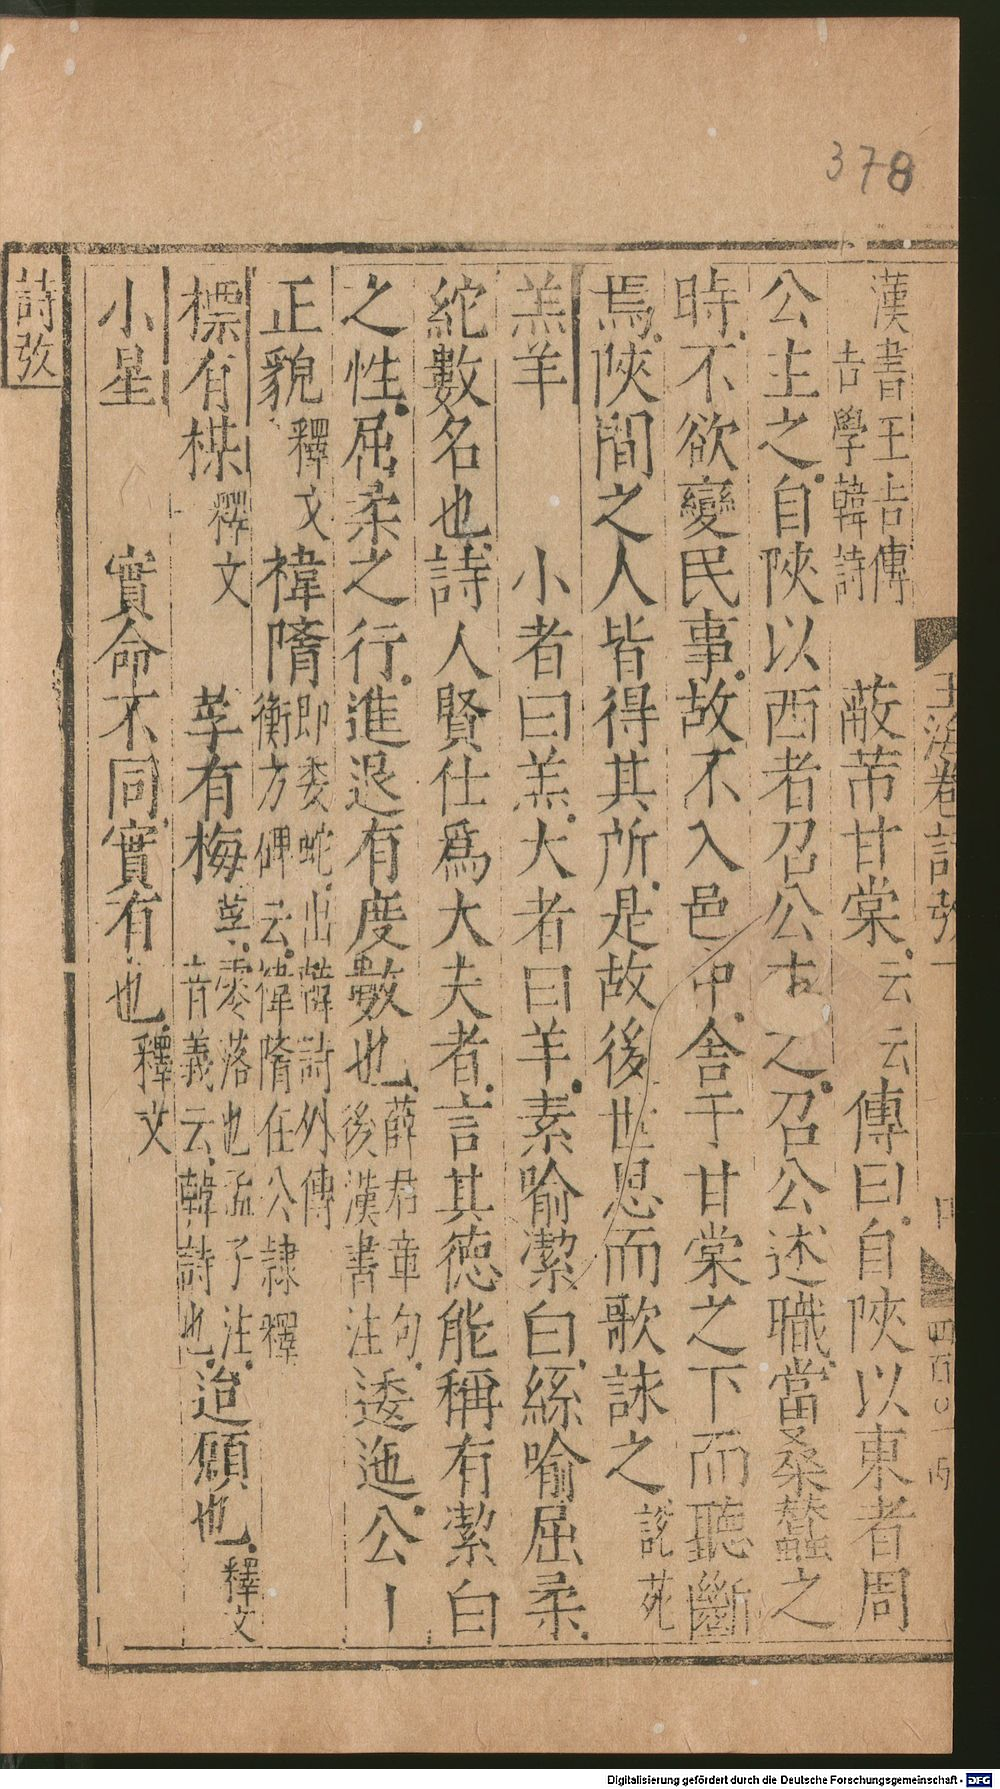 378
漢書王吉傳
吉學韓詩
蔽芾甘棠云云傳曰自陜以東者周
公主之自陜以西者召公主之召公述職當桑蠶之
時不欲變民事故不入邑中舍于甘棠之下而聽斷
焉陜間之人皆得其所是故後世思而歌詠之說苑
羔羊 小者曰羔大者曰羊素喻潔白絲喻屈柔
紽數名也詩人賢仕爲大夫者言其德能稱有潔白
之性屈柔之行進退有度數也薛君章句
後漢書注
逶迤公丨
正貌釋文禕隋即委蛇出韓詩外傳
衡方碑云禕隋在公隷釋
摽有楳釋文 莩有梅莩零落也孟子注
音義云韓詩也
迨願也釋文
小星 實命不同實有也釋文
詩攷
玉海卷詩攷一
四百〇一丙
Digitalisierung gefördert durch die Deutsche Forschungsgemeinschaft - DFG